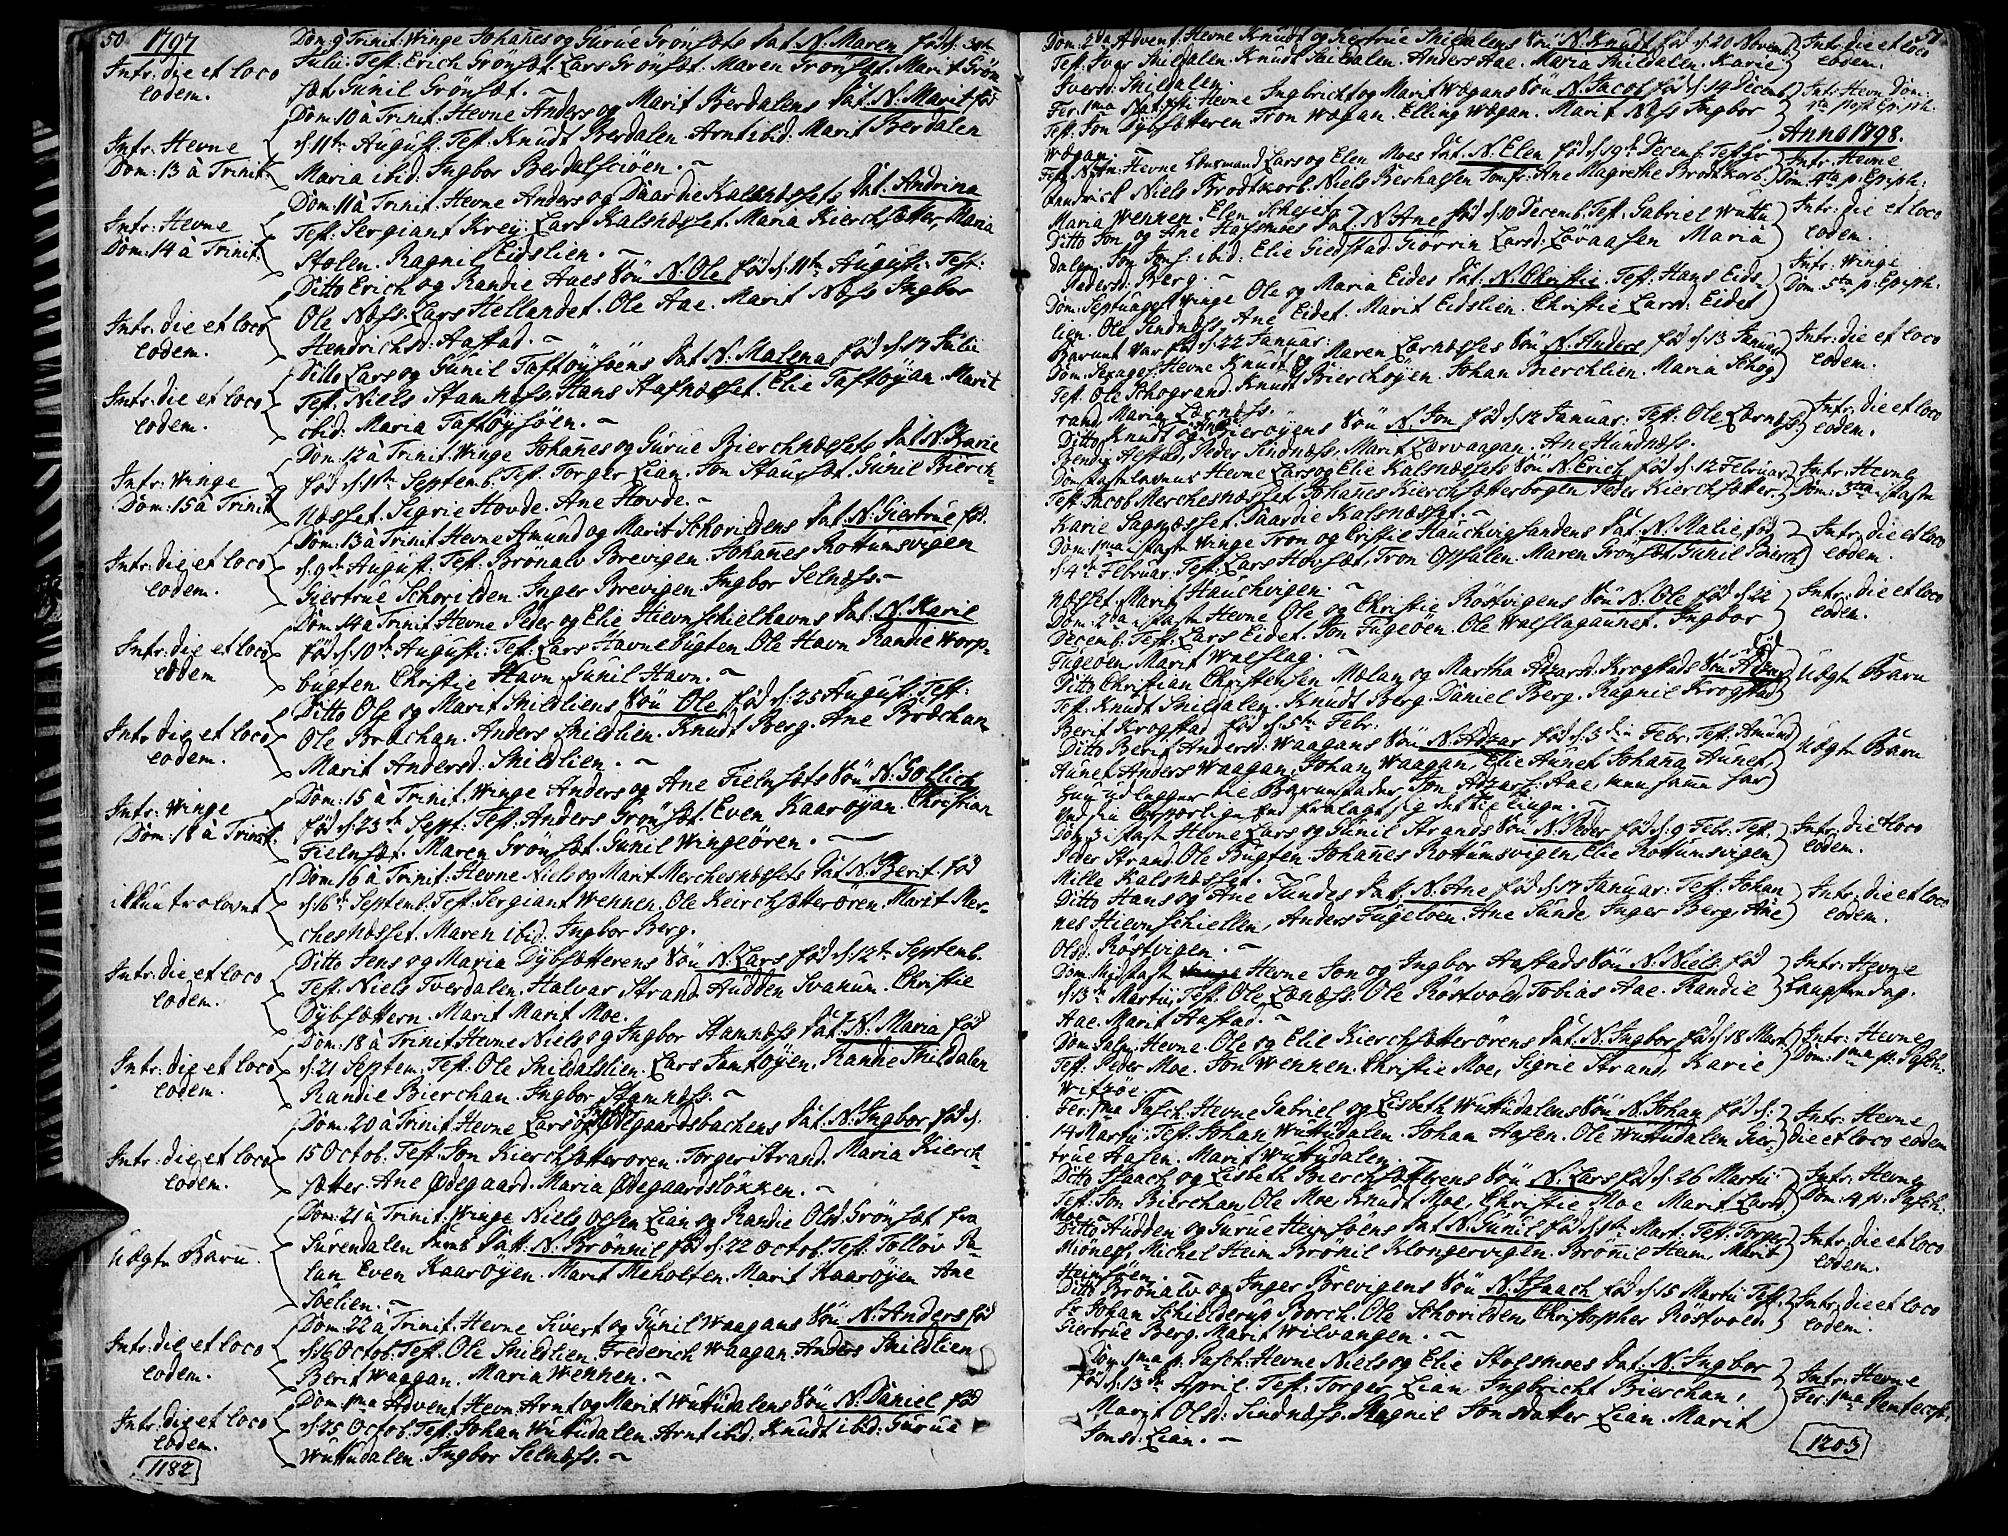 50 1797
Intr: die et loco
eodem.
Dom: 9 Trinit: Winge Johanes og Gurue Grönsæts Dat. N. Maren fød d: 30te
Julii: Test: Erich Grönset. Lars Grönset. Maren Grönsæt. Marit Grön
sæt Gunil Grönset.
Intr: Hevne
Dom: 13 à Trinit:
Dom: 10 à Trinit: Hevne Anders og Marit Berdalens Dat. N. Marit fød
d: 11te August: Test: Knudt Berdalen Arnt ibid: Marit Berdalen
Maria ibid: Ingbor Berdalseven. ~
Intr: Hevne
Dom: 14 à Trinit.
Dom: 11 à Trinit: Hevne Anders og Daarthe Kalsnæssets Dat: Andrina
Test: Sergiant Krey: Lars Kalsnesset. Maria Kierchsætter, Maria
Stolen. Ragnil Eidslien.
Intr: die et loco
eodem.
Ditto Erich og Randie Aaes Sön N. Ole fød d: 11te Augusti: Test:
Ole Næss. Lars Hellandet. Ole Aae. Marit Næss Ingbor
Hendrichsd: Hastad. ~
Intr: die et loco
eodem.
Ditto Lars og Gunil Taftöysöens Dat N. Malena fød d: 17 Julii
Test: Niels Stamness, Hans Hafnæsset. Elie Taftöyan. Marit
ibid: Maria Taftöysöen. ~
Intr: Winge
Dom: 15 à Trinit
Dom: 12 à Trinit. Winge Johanes og Gurue Bierchnæssets Dat N. Karie
fød d: 1te Septemb. Test. Torger Lian. Jon Staursæt. Gunil Bierch-
næsset. Sigrie Hovde. Ane Hovde. ~
Intr: die et loco
eodem.
Dom: 13 à Trinit Hevne Amund og Marit Schorildens Dat. N. Giertrue fød.
d: 9de August: Test: Brönalv Brevigen. Johanes Rottumsvigen
Giertrue Schorilden. Inger Brevigen. Ingbor Selnæss. ~
Intr: die et loco
eodem
Dom: 14 à Trinit Hevne Peder og Elie Hievnschielhavns Dat. N. Karil
fød d: 10de Augusti: Test: Lars Havnebugten. Ole Havn. Randie Worp-
bugten Christie Havn Gunil Havn. ~
Intr: die et loco
eodem.
Ditto Ole og Marit Snildliens Sön Ole fød d: 25 August: Test:
Ole Brachan. Anders Snildlien. Knudt Berg. Ane Brachan
Marit Andersd: Snildlien. ~
Intr: Winge
Dom: 18 à Trinit.
Dom: 15 à Trinit. Winge Anders og Ane Fielnsæts Sön N: Gollich
fød d: 23de Sept. Test: Anders Grönset. Even Kaaröyan. Christian
Fielnsæt. Maren Grönsæt Gunil Wingeören. ~
ikke introlevert
Dom: 16 à Trinit: Hevne Niels og Marit Merchesnæssets Dat N. Berit fød
d: 16de Septemb. Test. Sergiant Wennen. Ole Keirchsætterören. Marit Mer-
chesnæsset. Maren ibid: Ingbor Berg.
Intr: die et loco
eodem.
Ditto Jens og Maria Dybsætterens Sön N. Lars fød d: 12te Septemb.
Test. Niels Tverdalen, Halvar Strand Audden Svanum. Christie
Dybsættern. Marit Marit Moe.
Intr: die et loco
eodem.
Dom: 18 à Trinit Hevne Niels og Ingbor Stamnæss Dat. N. Maria fød
d: 21 Septem. Test: Ole Snildalslien. Lars Samtöyen, Randie Snildalen
Randie Bierchan. Ingbor Stamness. ~
Intr. die et loco
eodem.
Dom: 20 à Trinit Hevne Lars og Ödegaardsbachens Dat. N: Ingbor fød d:
15 Octob. Test. Jon Kierchsætterören. Torger Strand. Maria Kierch-
sætter. Ane Ødegaard. Maria Ødegaardsløkken. ~
Uægte Barn.
Dom: 21 à Trinit. Winge Niels Olsen Lian og Randie Olsd. Grönset fra
Surendalen Dat: N. Brönnil fød d: 22 Octob. Test: Tollöv
lan Even Kaaröyen. Marit Meholten. Marit Kaaröyen Ane
Soelien. ~
Intr: die et loco
eodem.
Dom: 22 à Trinit. Hevne Sivert og Gunil Waagans Sön N. Anders fød
d: 16 Octob. Test. Ole Snildlien. Frederich Waagan. Anders Snildlien
Berit Waagan. Maria Wennen. ~
Intr. die et loco
eodem.
Dom: 1ma Advent Hevn: Arnt og Marit Wuttudalens Sön N. Daniel fød
d: 25 Octob. Test. Johan Wuttudal. Arnt ibid: Knudt ibid: Gurua
Wuttudalen. Ingbor Selness. ~
1182
51
Dom: 2da Advent. Hevne Knudt og Giertrue Snildalens Sön N. Knudt fød d: 20 Novemb.
Test. Iver Snildalen. Knudt Snildalen. Anders Aae. Maria Snildalen. Karie
Iversd: Snildalen
Intr: die et loco
eodem.
Fer: 1ma Nat. Xsti Hevne Ingbricht og Marit Wægans Sön N. Jacob fød d: 14 Decemb
Test. Jon Dybsætteren Tron Wægan. Elling Wægan. Marit Næss Ingbor
Wægan. ~
Intr: Hevn: Dom:
4ta post Epiph.
Anno 1798.
Hevne Lensmand Lars og Elen Moes Dat. N. Elen fød d: 19de Decemb. Test: Sr
Niels Brodtkorb. Niels Berhalsen Jomfr: Ane Magrethe Brodtkorb,
Maria Wennen. Elen Schejet ~
Intr: Hevne
Dom: 4ta p. Epiph:
Ditto Jon og Ane Hafsmoes Dat. N. Ane fød d: 10 Decemb. Test. Gabriel Wuttu
dalen. Jon Jons: ibid: Elie Giedstad. Giörrin Larsd: Lövaasen Maria
Pedersd: Berg. ~
Intr: die et loco
eodem.
Dom: Septuages: Winge Ole og Maria Eides Dat. N. Christie. Test: Hans Eids-
lien. Ole Sindnæss, Ane Eidet. Marit Eidslien. Christie Larsd: Eidet
Barnet var fød d: 22 Januar:
Intr: Winge
Dom: 5ta p. Epiph.
Dom: Sexages: Hevne Knudt og Maren Lernæsses Sön N. Anders fød d: 13 Januar
Test. Ole Schogrand. Knudt Bierchöyen. Johan Bierchlien. Maria Schog-
rand. Maria Lærness.
Intr: die et loco
eodem.
Ditto Knudt og Ane Bieröyens Sön N. Jon fød d: 12 Januar: Test: Ole Lærness
Bendix Hestad, Peder Sindnæss, Marit Lervaagan. Ane Hundness.
Intr: die et loco
eodem.
Dom: Fastelavns Hevne Lars og Elie Kalsnæssets Sön N. Erich fød d: 12 Februar
Test. Jacob Merchesnæsset Johanes Kierchsætterbogen Peder Kierchsætter.
Karie Sagnæsset. Daardie Kalsnæsset. ~
Intr: Hevne
Dom: 3tia i Faste
Dom: 1ma i Faste Winge Tron og Cristie Hauchvigsandens Dat. N. Malie, fød
d: 4de Februar. Test. Lars Hovset, Tron Opsalen. Maren Tronset. Gunil Bierch
næsset. Marit Hauchvigen ~
Intr: die et loco
eodem.
Dom: 2da i Faste Hevne Ole og Christie Röstvigens Sön N. Ole fød d: 22
Decemb. Test: Lars Eidet. Jon Fugeöen. Ole Walslagaunet. Ingbor
Fugeöen, Marit Walslag. ~
Intr: die et loco
eodem.
Ditto Christian Christensen Mælan og Martha Adzarsd: Krogstads Sön Adzar
Test: Knudt Snildalen. Knudt Berg. Daniel Berg. Ragnil Krogstad
Berit Krogstad fød d: 5te Febr.
Uægte Barn
Ditto Berit Andersd: Waagans Sön N. Adzar fød d: 3die Febr: Test: Amund
Aunet Anders Waagan. Johan Waagan, Elie Aunet Johana Aunet,
Hun udlegger til Barnefader Jon Adzars: Aae, men samme har
Uægte Barn
Dom: 3 i Faste Hevne Lars og Gunil Strands Sön N. Peder fød d: 9 Febr: Test.
Peder Strand. Ole Bugten. Johanes Rottumsvigen, Elie Rottumsvigen
Mille Kalsnæsset. ~
Intr: die et loco
eodem.
Ditto Hans og Ane Sundes Dat. N. Ane fød d: 17 Januar. Test. Johan
nes Hievnschiellen, Anders Fugelöen. Ane Sunde Inger Berg. Ane
Olsd. Röstvigen. ~
Intr: die et loco
eodem.
Dom: Midfast Hevne Jon og Ingbor Hastads Sön N. Niels fød
d: 13de Martii, Test. Ole Lenæss. Ole Röstvold, Tobias Aae. Randie
Aae. Marit Hastad. ~
Intr: Hevne
Langfredag.
Dom: Palm: Hevne Ole og Elie Kierchsætterörens Dat. N. Ingbor fød d: 18 Mart
Test: Peder Moe. Jon Wennen. Christie Moe, Sigrie Strand, Karie
Witzöe. ~
Intr: Hevne
Dom: 1ma p. Pasch.
Fer: 1ma Pasch: Hevne Gabriel og Lisbeth Wuttudalens Sön N. Johan fød d:
14 Martii: Test: Johan Wuttudalen. Johan Aasen. Ole Wuttudalen Gier-
true Aasen. Marit Wuttudalen. ~
Intr: Hevne
die et loco eodem
Ditto Isaach og Lisbeth Bierchsætterens Sön N. Lars fød d: 26 Martii
Test: Jon Bierchan, Ole Moe, Knudt Moe, Christie Moe Marit Larsd:
Moe.
Intr: Hevne
Dom: 4 p. Pasch.
Ditto Audden og Gurue Heimsöens Dat. N. Gunil fød d: 1te Mart: Test: Torger
Michel Heim Brönil Klongervigen. Brönil Heim, Marit
Heimsöen. ~
Intr: die et loco
eodem.
Ditto Brönalv og Inger Brevigens Sön N. Isaach fød d: 15 Martii Test.
Sr Johan Schielderup Borch. Ole Schorilden, Christopher Röstvold.
Giertrue Berg. Marit Wilvangen. ~
Intr: die et loco
eodem.
Dom: 1ma p. Pasch: Hevne Niels og Elie Stolsmoes Dat. N. Ingbor
fød d: 13de April. Test: Torger Lian. Ingbricht Bierchan.
Marit Olsd: Sindnæss. Magnil Jonsdatter Lian. Marit
Jonsd: Lian. ~
Intr: Hevne
Fer: 1ma Pentecost.
1203